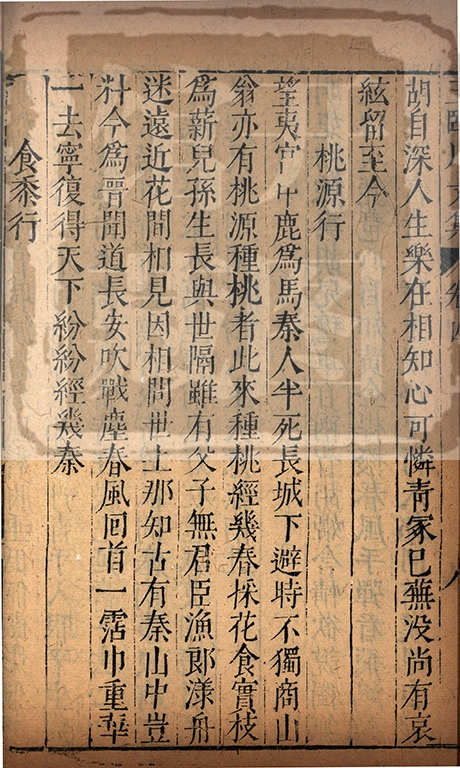 胡自深人生樂在相知心可憐青冢已蕪没尚有哀
絃留至今
桃源行
望夷宫中鹿爲馬秦人半死長城下避時不獨商山
翁亦有桃源種桃者此來種桃經幾春採花食實枝
爲薪兒孫生長與世隔雖有父子無君臣漁郎漾舟
迷遠近花間相見因相問世上那知古有秦山中豈
料今爲晉聞道長安吹戰塵春風回首一霑巾重華
一去寧復得天下紛紛經幾秦
食黍行